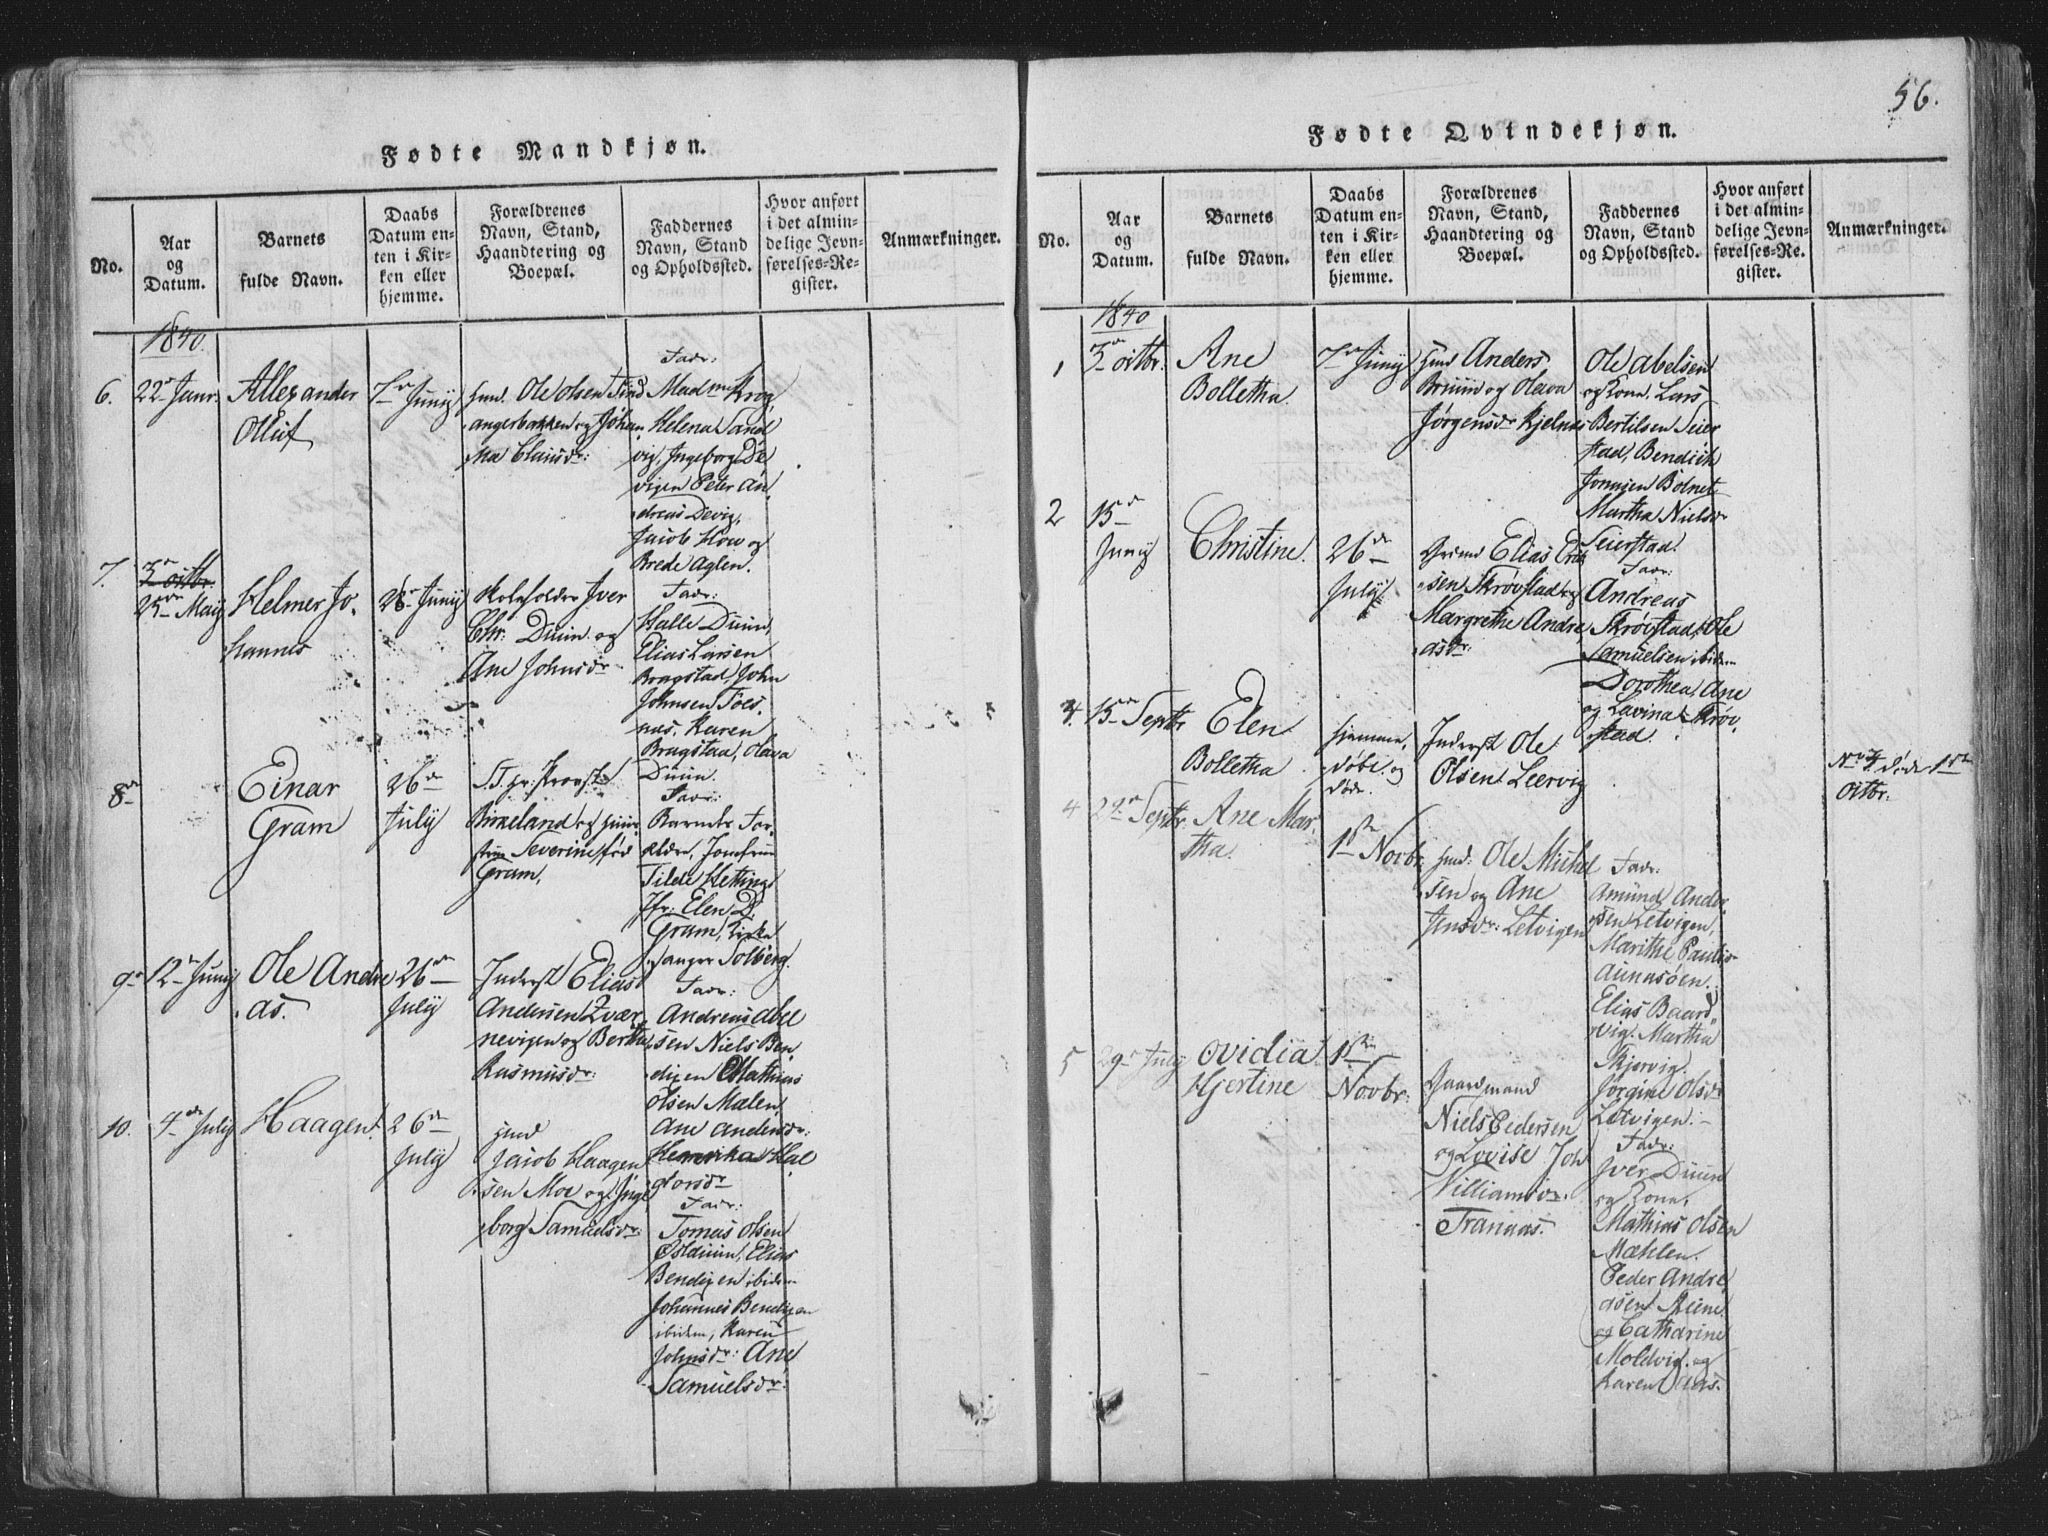 Fødte Mandkjøn.
No.
Aar
og
Datum.
Barnets
fulde Navn.
Daabs
Datum en-
ten i Kir-
ken eller
hjemme.
Forældrenes
Navn, Stand,
Haandtering og
Boepæl.
Faddernes
Navn, Stand
og Opholdssted.
Hvor anført
i det almin-
delige Jevn-
førelses-Re-
gister.
Anmærkninger.
1840.
6.
22 Janr.
Allexander
Olluf
7de Junij
Ole Olsen
angerbakken og Johan,
na Clausdr:
Fadr:
Madme Krog
Helena Sand
vig, Ingeborg De
vigen Peter An,
dreas Devig,
Jacob Hou og
Brede Aglen.
7.
3de Octbr.
25de Maij
Helmer Jo,
hannes
28de Junij
Iver
Chr: Duun og
Ane Johnsdr
Fadr:
Halle Duun,
Elias Larsen
Bragstad, John
Johnsen Foes,
næs, Karen
Bragstad, Olava
Duun.
8de
Einar
Gram
26de
Julij
S.T. hr: Provst
Birkeland og huus,
true Severine fød
Gram.
Fadr:
Barnets For,
ældre, Jomfrue
Tilde Hetting
Jfr: Elen D.
Gram, Kirke
sanger Solberg.
9de
12te Junij
Ole Andre
as.
26de
Julij
Inderst Elias
Andersen Zvær
nevigen og Bertha
Rasmusdr:
Fadr:
Andreas Abel
sen Niels Ben,
dixen Mathias
Olsen Malen,
Ane Andersdr:
Henrika Hal
Fadr:
10.
4de Julij
Haagen.
26de
Julij
Jacob Haagen
sen Moe og Inge
borg Samuelsdr:
Tomas Olsen
Østduun, Elias
Bendixen ibidem
Johannes Bendixen
ibidem, Karen
Johnsdr: Ane
Samuelsdr:
56.
Fødte Qvindekjøn.
No.
Aar
og
Datum.
Barnets
fulde Navn.
Daabs
Datum en-
ten i Kir-
ken eller
hjemme.
Forældrenes
Navn, Stand,
Haandtering og
Boepæl.
Faddernes
Navn, Stand
og Opholdssted.
Hvor anført
i det almin-
delige Jevn-
førelses-Re-
gister.
Anmærkninger.
1840
1
3de Octbr.
Ane
Bolletha.
7de Junij
Huusmd Anders
Bruun og Olava
Jørgensdr Kjelnæs
Ole Abelsen
og Kone, Lars
Bertilsen Seier
stad, Bendich
Bolnet
Martha Nielsdr
Seierstad.
2
15de
Junij
Christine.
26de
Julij
Elias Erik
sen Skrøvstad og
Margrethe Andre,
asdr:
Fadr:
Andreas
Skrøvstad, Ole
Samuelsen ibidem
Dorothea, Ane
og Lavina Skrøv,
stad.
3.
15de Septbr
Elen
Bolletha
hjemme,
døbt og
død.
Inderst Ole
Olsen Leervig
No 3 døde 1ste
Octbr:
4
22de Septbr.
Ane Mar,
tha.
1ste Novbr
Ole Michel
sen og Ane
Jensdr: Letvigen
Fadr:
Amund Ander,
sen Letvigen,
Marithe Pauls
Aunasøen.
Elias Baard,
vig. Martha
Skjervig.
Jørgine Olsdr
Letvigen.
5
29de Julij
Ovidia
Hjertine
1ste
Novbr:
Gaardmand
Niels Pedersen
og Lovise Joh
Williamsdr.
Tranaas.
Fadr:
Iver Duun
og Kone,
Mathias Olsen
Mæhlen.
Peder Andre
asen
og Catharine
Moldvig og
Karen Aas.